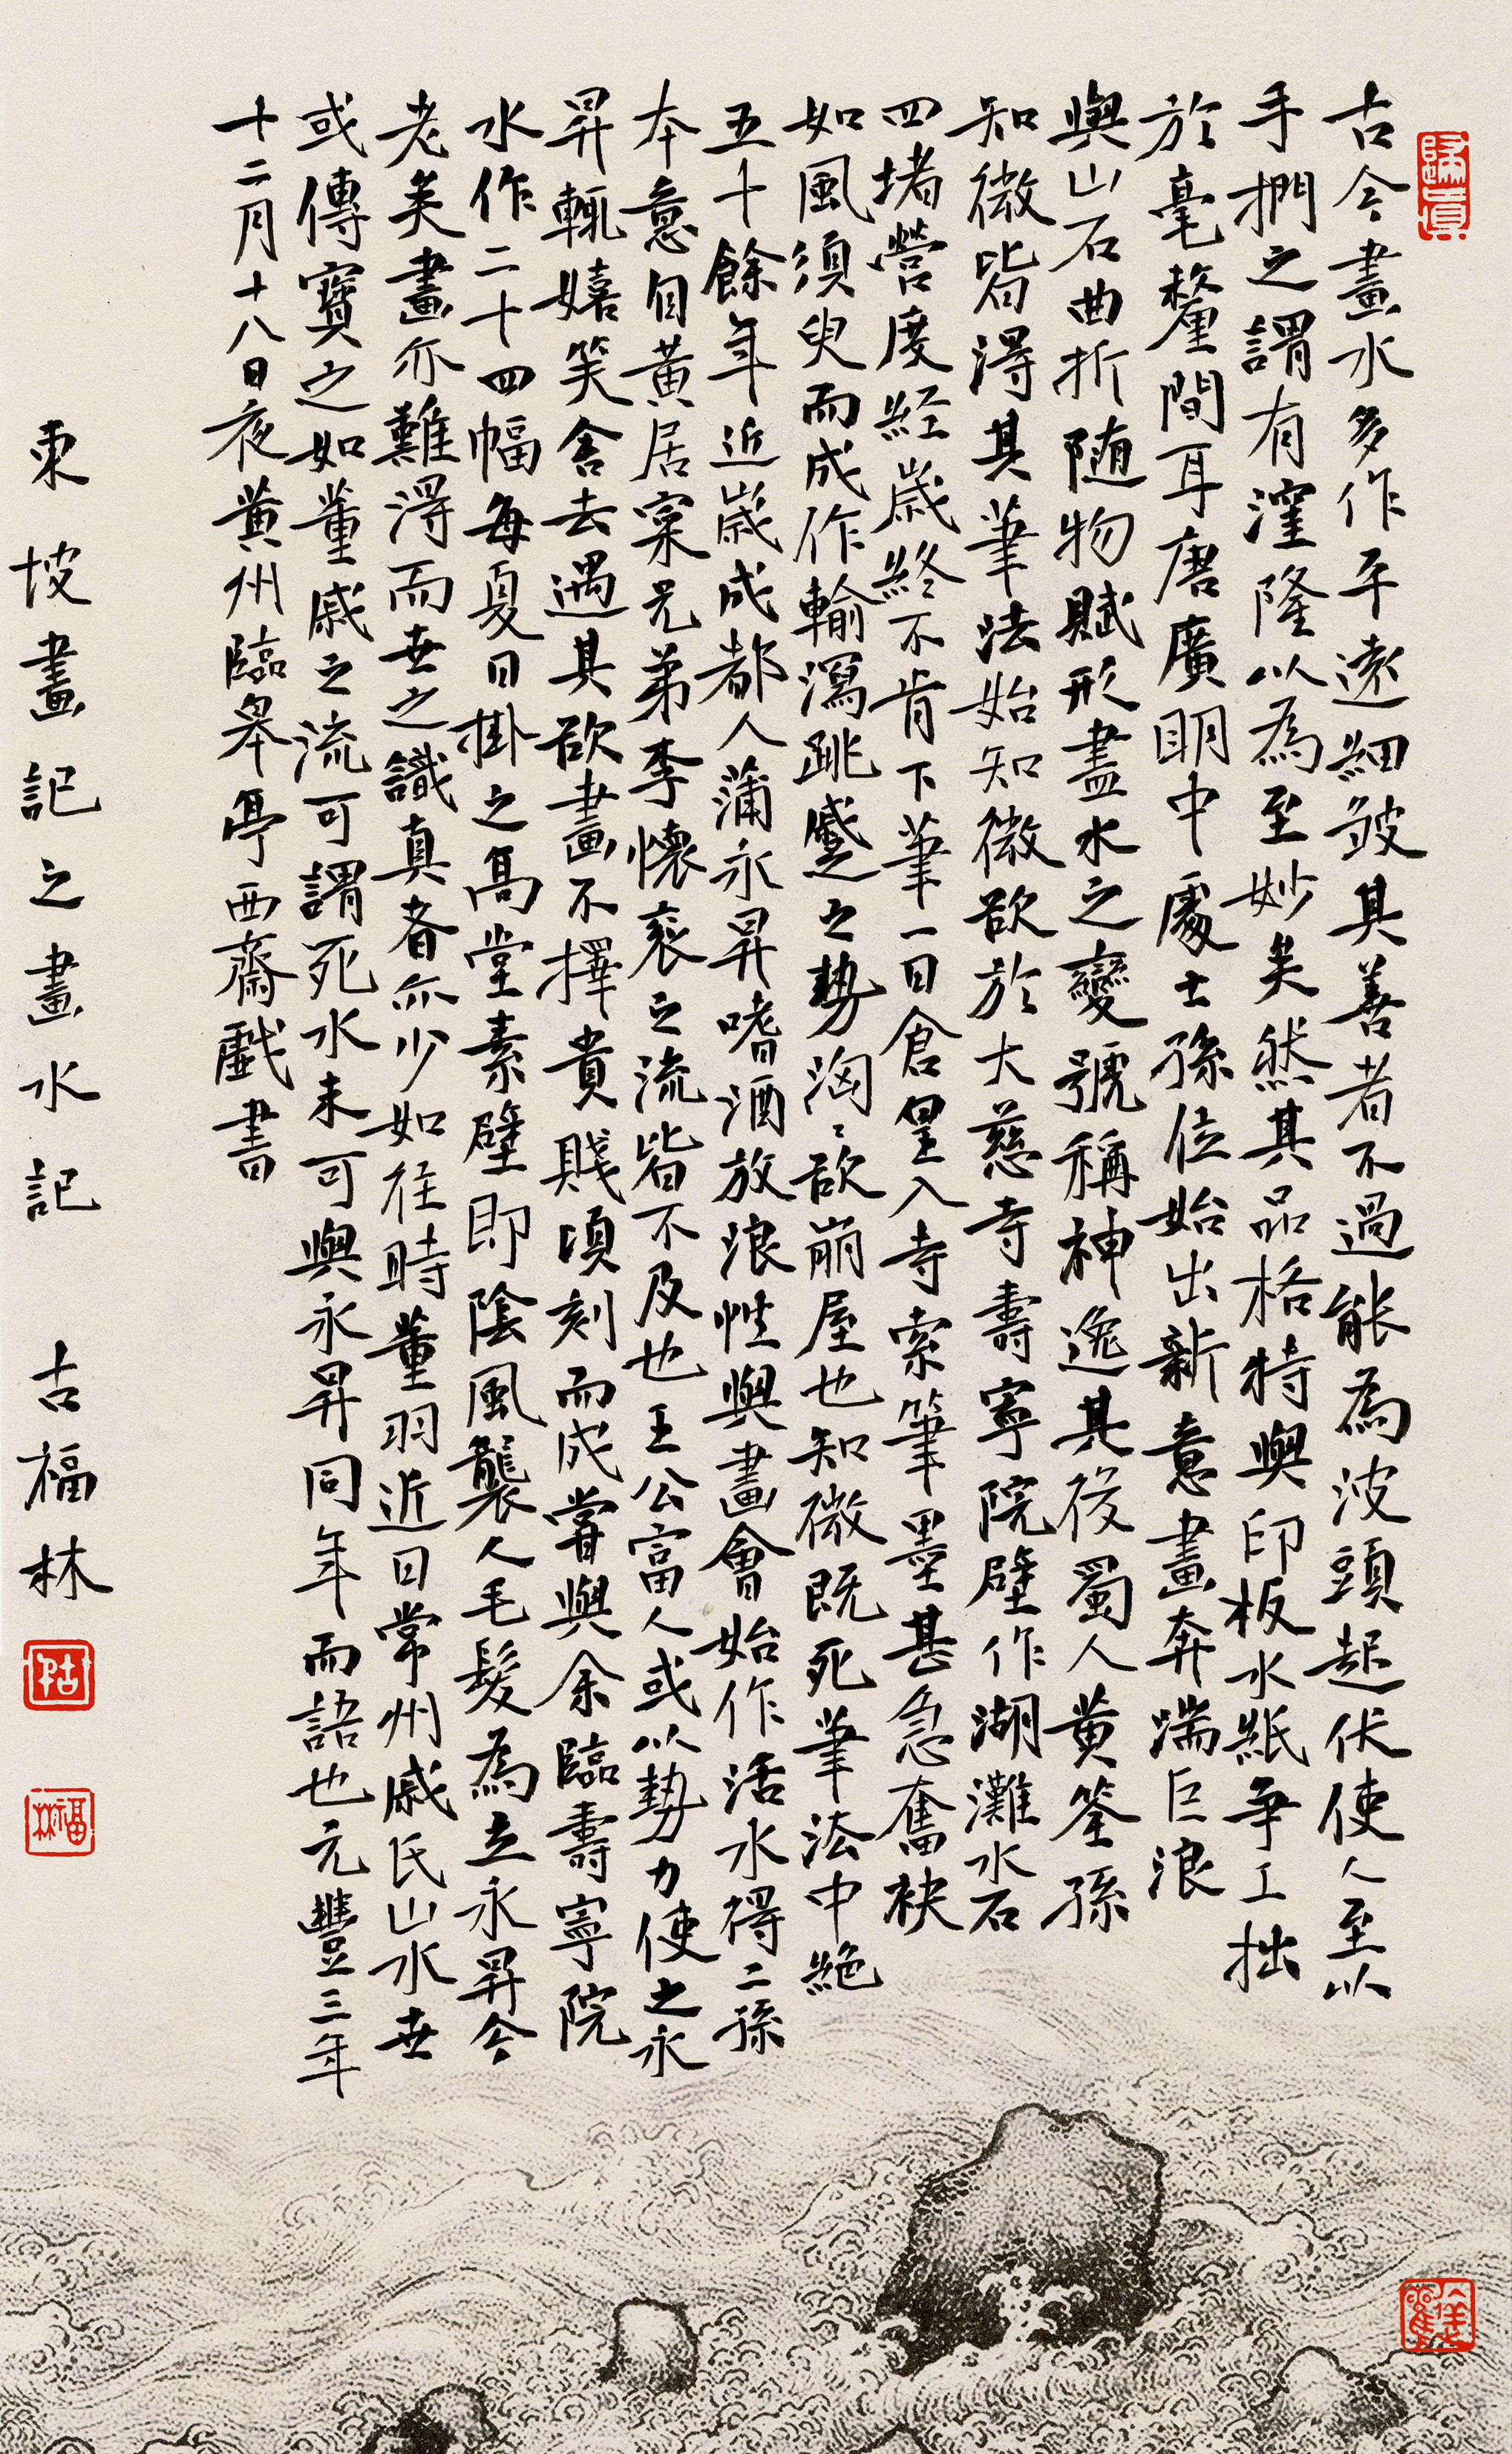 古今畫水多作平遠細皴其善者不過能為波頭起伏使人至以
手捫之謂有漥隆以為至妙矣然其品格特與印板水紙爭工拙
於毫釐間耳唐廣明中處士孫位始出新意畫奔湍巨浪
與山石曲折随物賦形盡水之變號稱神逸其後蜀人黄筌孫
知微皆得其筆法始知微欲於大慈寺壽寧院壁作湖灘水石
四堵營度經歲終不肯下筆一日倉皇入寺索筆墨甚急奮袂
如風須臾而成作輸瀉跳蹙之勢洶〻欲崩屋也知微既死筆法中絶
五十餘年近歲成都人蒲永昇嗜酒放浪性與畫會始作活水得二孫
本意自黄居寀兄弟李懷衮之流皆不及也王公富人或以勢力使之永
昇輒嬉笑舍去遇其欲畫不擇貴賤頃刻而成嘗與余臨壽寧院
水作二十四幅每夏日掛之高堂素壁即陰風襲人毛髮為立永昇今
老矣畫亦難得而世之識真者亦少如往時董羽近日常州戚氏山水世
或傳寳之如董戚之流可謂死水未可與永昇同年而語也元豐三年
十二月十八日夜黄州臨皋亭西齋戲書
東坡畫記之畫水記 古福林
福林